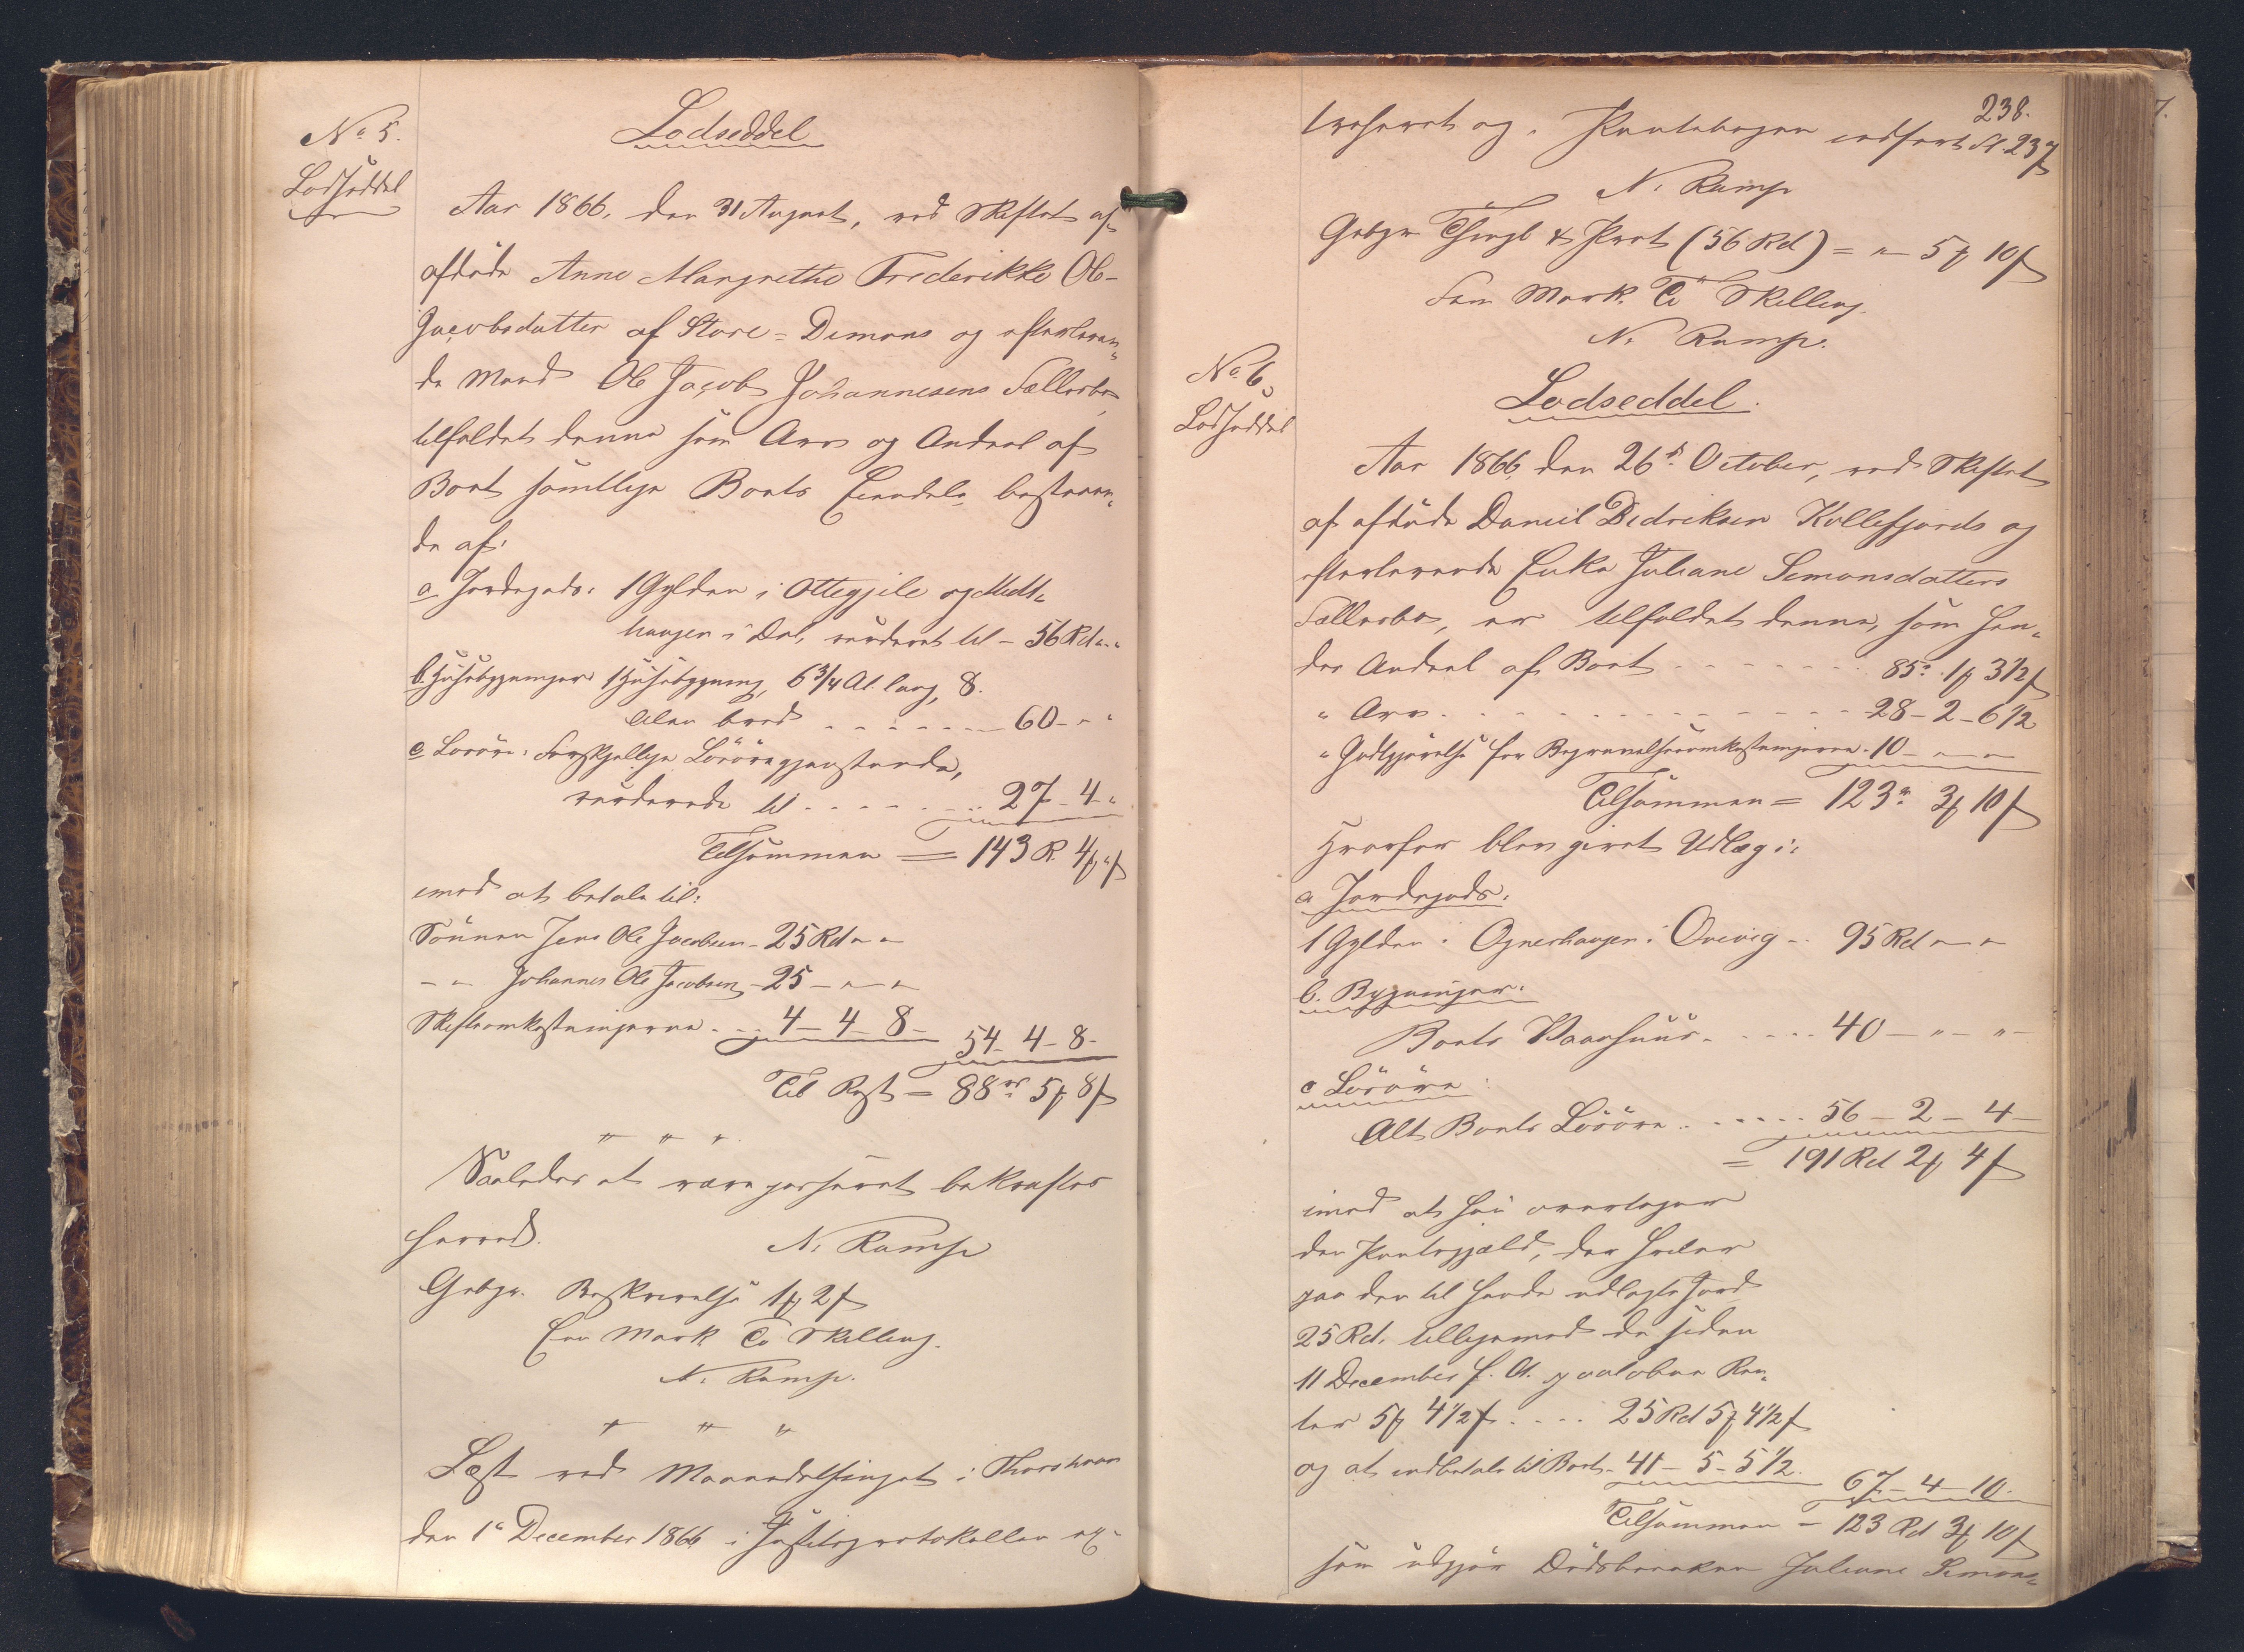 No 5.
Lodseddel
Lodseddel
Aar 1866, den 31 August, ved Skiftet af
afdøde Anne Margrethe Frederikke Ole
Jacobsdatter af Store=Dimons og efterleven„
de Mand Ole Jacob Johannesens Fællesbo
tilfaldet denne som Arv og Andeel af
Boet samtlige Boets Eiendele, bestaaen„
de af:
a Jordegods: 1 Gylden i Ottegjile og Midt„
haugen i Dal, vurderet til – 56 Rd „ „
b. Huusbygninger 1 Huusbygning, 6 3/4 Al. lang, 8.
Alen bred - - - - - - 60 - „ „
c Løsøre: Forskjellige Løsøregjenstande,
vurderede til - - - - - - 27 - 4 - „
Tilsammen = 143 R. 4 ₰ „ ſ
imod at betale til:
Sønnen Jens Ole Jacobsen - 25 Rd „ „
- „ Johannes Ole Jacobsen - 25 - „ - „
Skifteomkostningerne - - 4 - 4 - 8 -
54 - 4 - 8 -
Til Rest = 88 rd 5 ₰ 8 ſ
„ „ „
Saaledes at være passeret bekræftes
herved. N. Ramp
Gebyr. Beskrivelse 1 ₰ 2 ſ
Een Mark To Skilling.
N. Ramp.
„ „ „
Læst ved Maanedsthinget i Thorshavn
den 1e December 1866 i Justitsprotokollen ex-
238.
traheret og i Pantebogen indført Fol. 237
N. Ramp
Gebyr Thingl & Prot (56 Rd) = „ 5 ₰ 10 ſ
Fem Mark Ti Skilling.
N. Ramp.
No 6.
Lodseddel
Lodseddel.
Aar 1866, den 26de October, ved Skiftet
af afdøde Daniel Didriksen Kollefjords og
efterlevende Enke Juliane Simonsdatters
Fællesbo, er tilfaldet denne, som hen„
des Andeel af Boet - - - - - - 85 rd 1 ₰ 3 1/2 ſ
„ Arv. - - - - - - - - 28 - 2 - 6 1/2
„ Godtgjørelse for Begravelsesomkostningerne. 10 - „ - „
Tilsammen = 123 rd 3 ₰ 10 ſ
Hvorfor blev givet Udlæg i:
a Jordegods:
1 Gylden i Ognerhaugen i Qvivig - 95 Rd „ - „
b. Bygninger:
Boets Vaanhuus - - - - 40 - „ - „ -
c Løsøre:
Alt Boets Løsøre - - - - - 56 - 2 - 4 -
= 191 Rd 2 ₰ 4 ſ
imod at hun overtager
den Pantegjæld, der hviler
paa den til hende udlagte Jord
25 Rd, tilligemed de siden
11 December f. A. paaløbne Ren„
ter 5 ₰ 4 1/2 ſ - - - - 25 Rd 5 ₰ 4 1/2 ſ
og at indbetale til Boet - 41 - 5 - 5 1/2
67 - 4 - 10 -
Tilsammen = 123 Rd 3 ₰ 10 ſ
som udgjør Dødsboenken Juliane Simons=